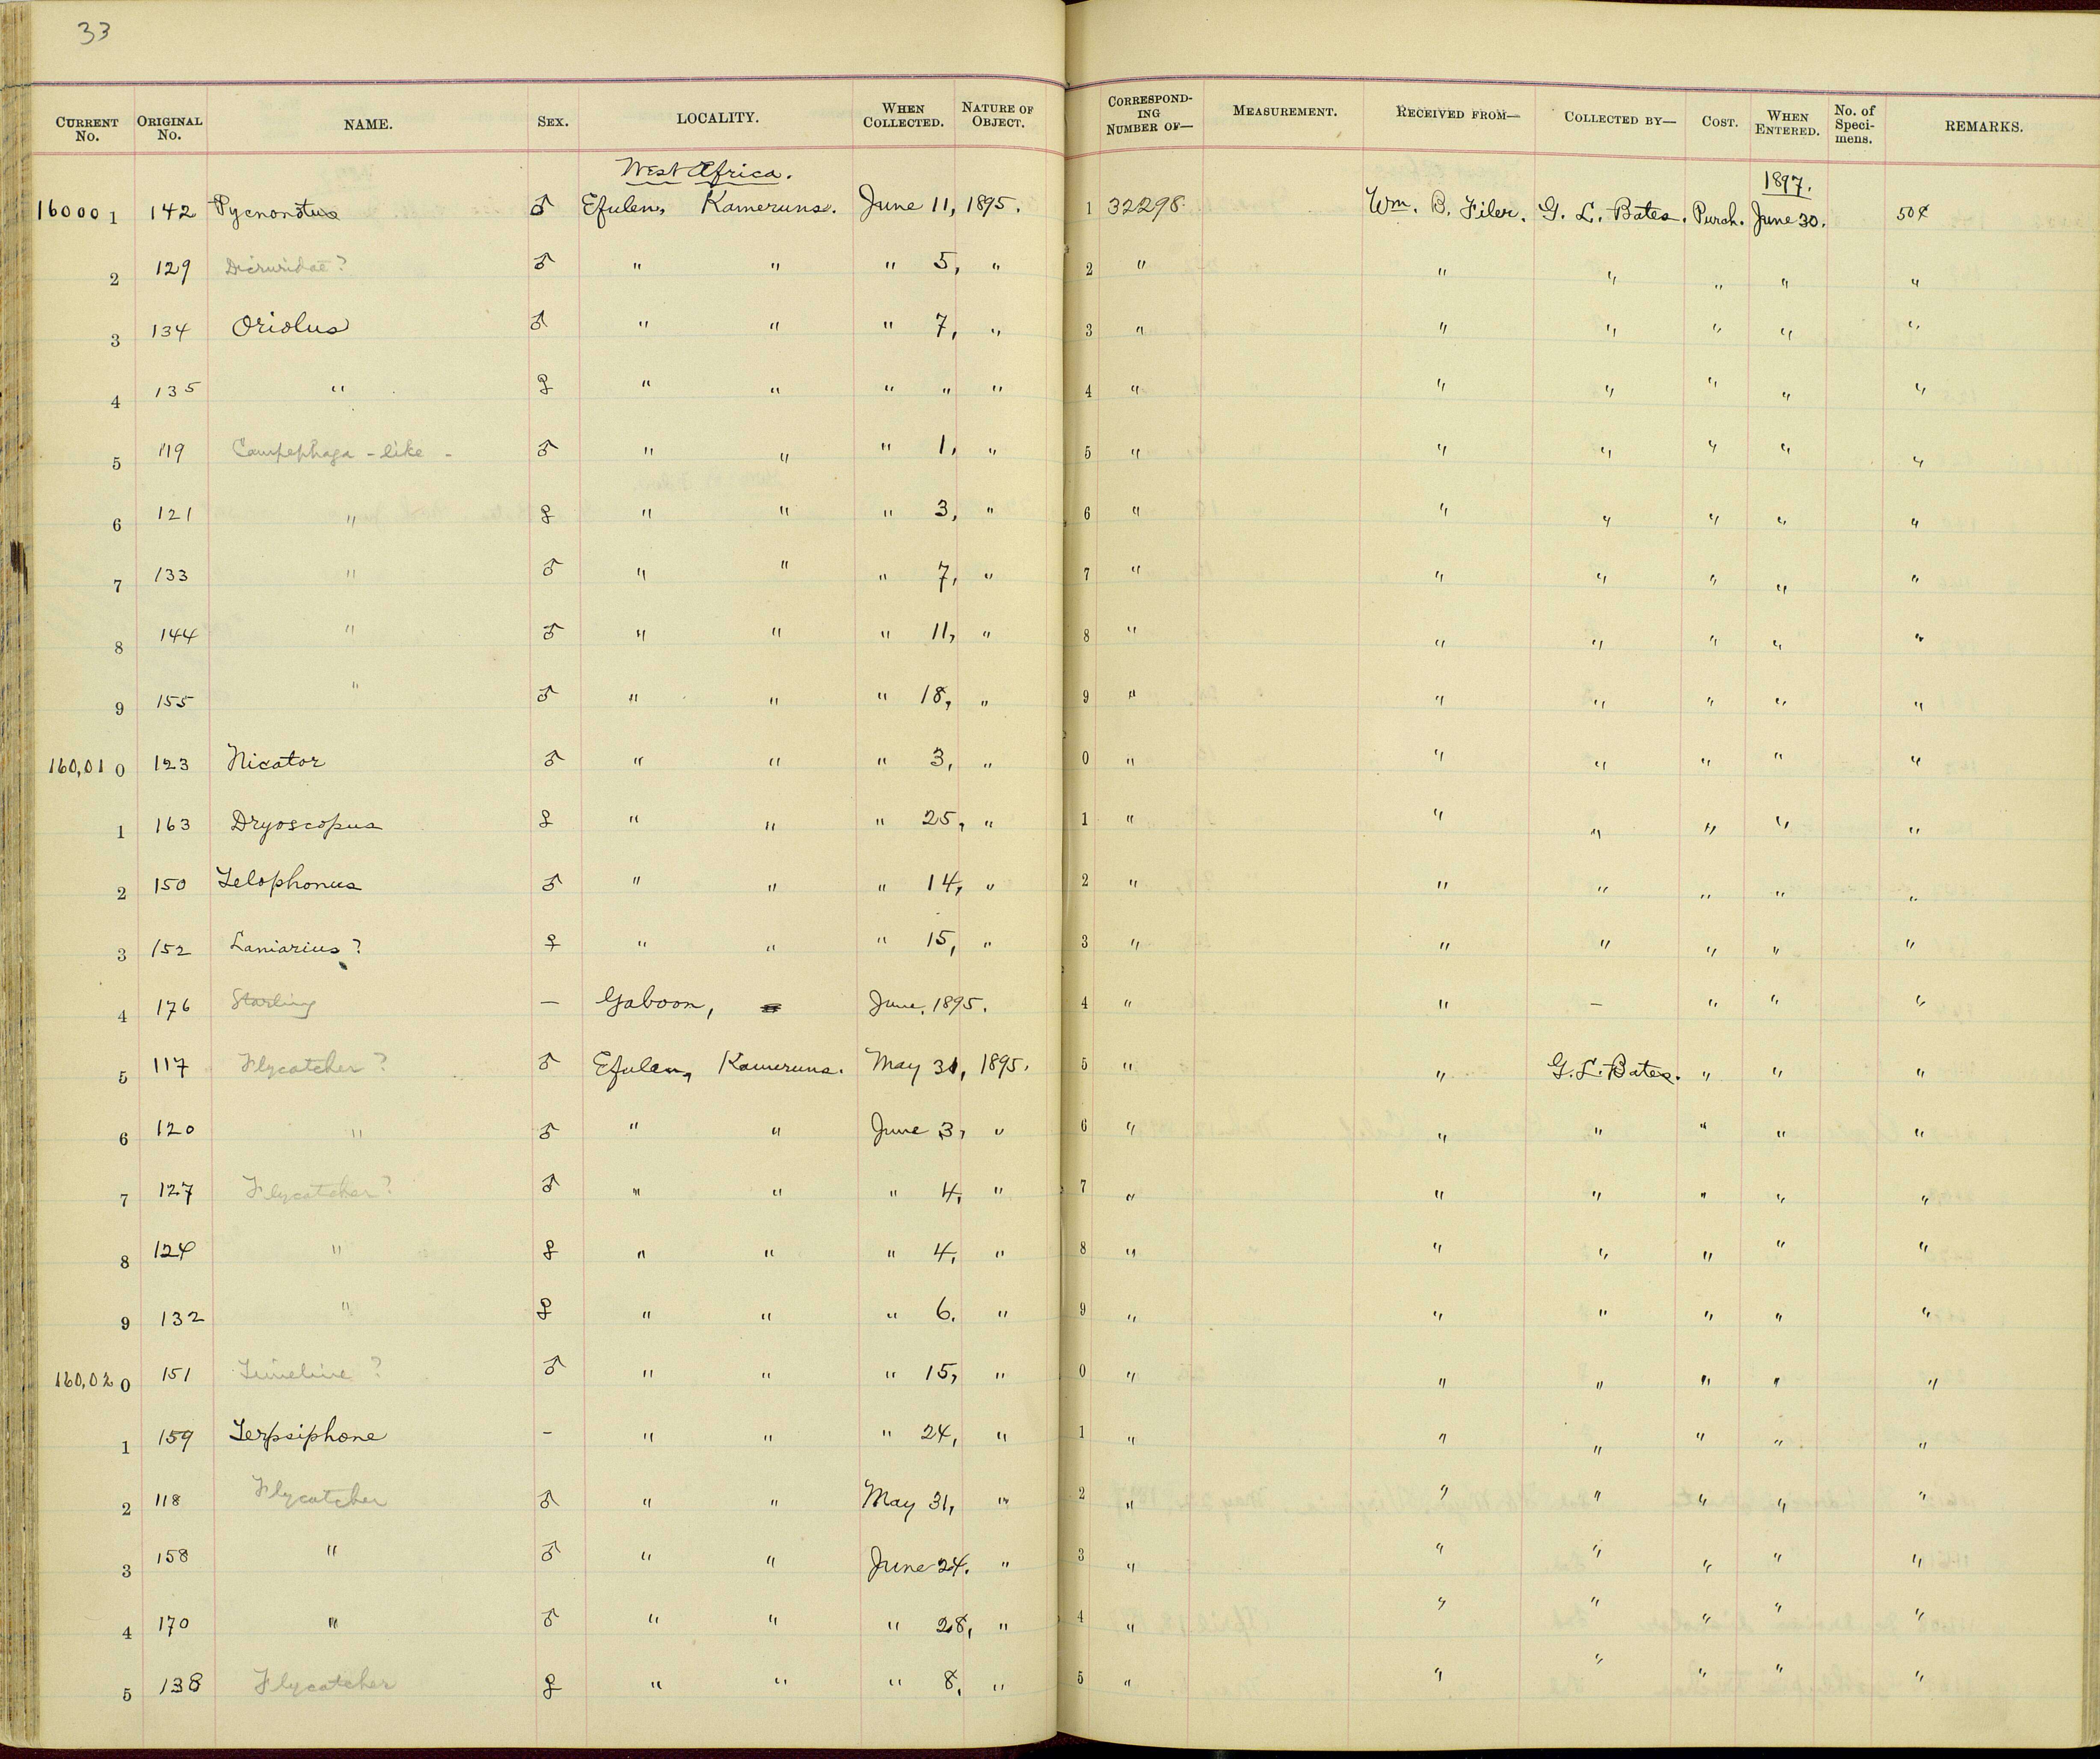 33
CURRENT No. ORIGINAL No. NAME. SEX. LOCALITY. WHEN COLLECTED. NATURE OF OBJECT. CORRESPONDING NUMBER OF— MEASUREMENT. RECEIVED FROM— COLLECTED BY— COST. WHEN ENTERED. No. of Specimens. REMARKS.
West Africa. 1897.
16000 1 142 Pycnonotus ♂ Efulen, Kameruns. June 11, 1895. 1 32298 Wm. B. Filer. G. L. Bates. Purch. June 30. 50¢
2 129 Dicruridae? ♂ " " " 5, " 2 " " " " " "
3 134 Oriolus ♂ " " " 7, " 3 " " " " " "
4 135 " ♀ " " " " " 4 " " " " " "
5 119 Campephaga - like - ♂ " " " 1, " 5 " " " " " "
6 121 " ♀ " " " 3, " 6 " " " " " "
7 133 " ♂ " " " 7, " 7 " " " " " "
8 144 " ♂ " " " 11, " 8 " " " " " "
9 155 " ♂ " " " 18, " 9 " " " " " "
160,01 0 123 Nicator ♂ " " " 3, " 0 " " " " " "
1 163 Dryoscopus ♀ " " " 25, " 1 " " " " " "
2 150 Telophonus ♂ " " " 14, " 2 " " " " " "
3 152 Laniarius? ♀ " " " 15, " 3 " " " " " "
4 176 Starling — Gaboon, June, 1895. 4 " " — " " "
5 117 Flycatcher? ♂ Efulen, Kameruns. May 31, 1895. 5 " " G. L. Bates. " " "
6 120 " ♂ " " June 3, " 6 " " " " " "
7 127 Flycatcher? ♂ " " " 4, " 7 " " " " " "
8 124 " ♀ " " " 4, " 8 " " " " " "
9 132 " ♀ " " " 6. " 9 " " " " " "
160,02 0 151 Timeline? ♂ " " " 15, " 0 " " " " " "
1 159 Terpsiphone — " " " 24, " 1 " " " " " "
2 118 Flycatcher ♂ " " May 31, " 2 " " " " " "
3 158 " ♂ " " June 24. " 3 " " " " " "
4 170 " ♂ " " " 28, " 4 " " " " " "
5 138 Flycatcher ♀ " " " 8, " 5 " " " " " "